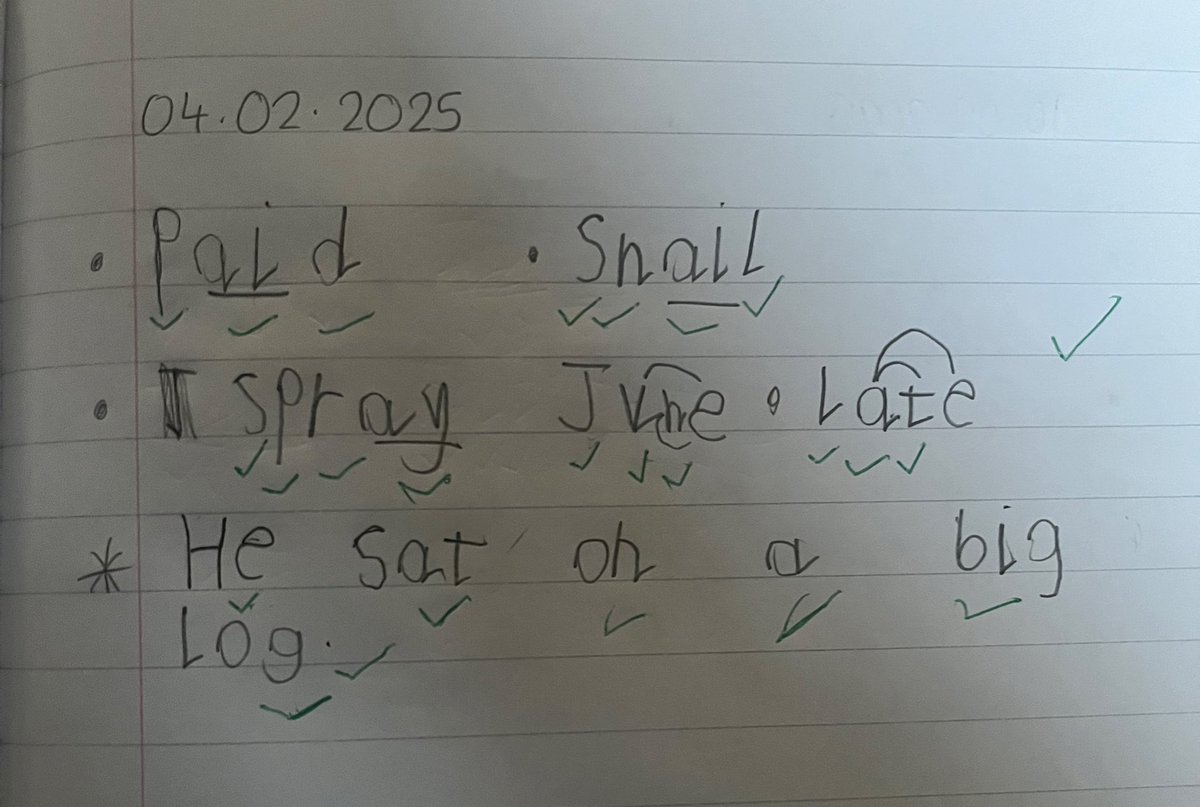 04.02.2025
• Paid • Snail
• spray June • Late
* He sat on a big
Log.